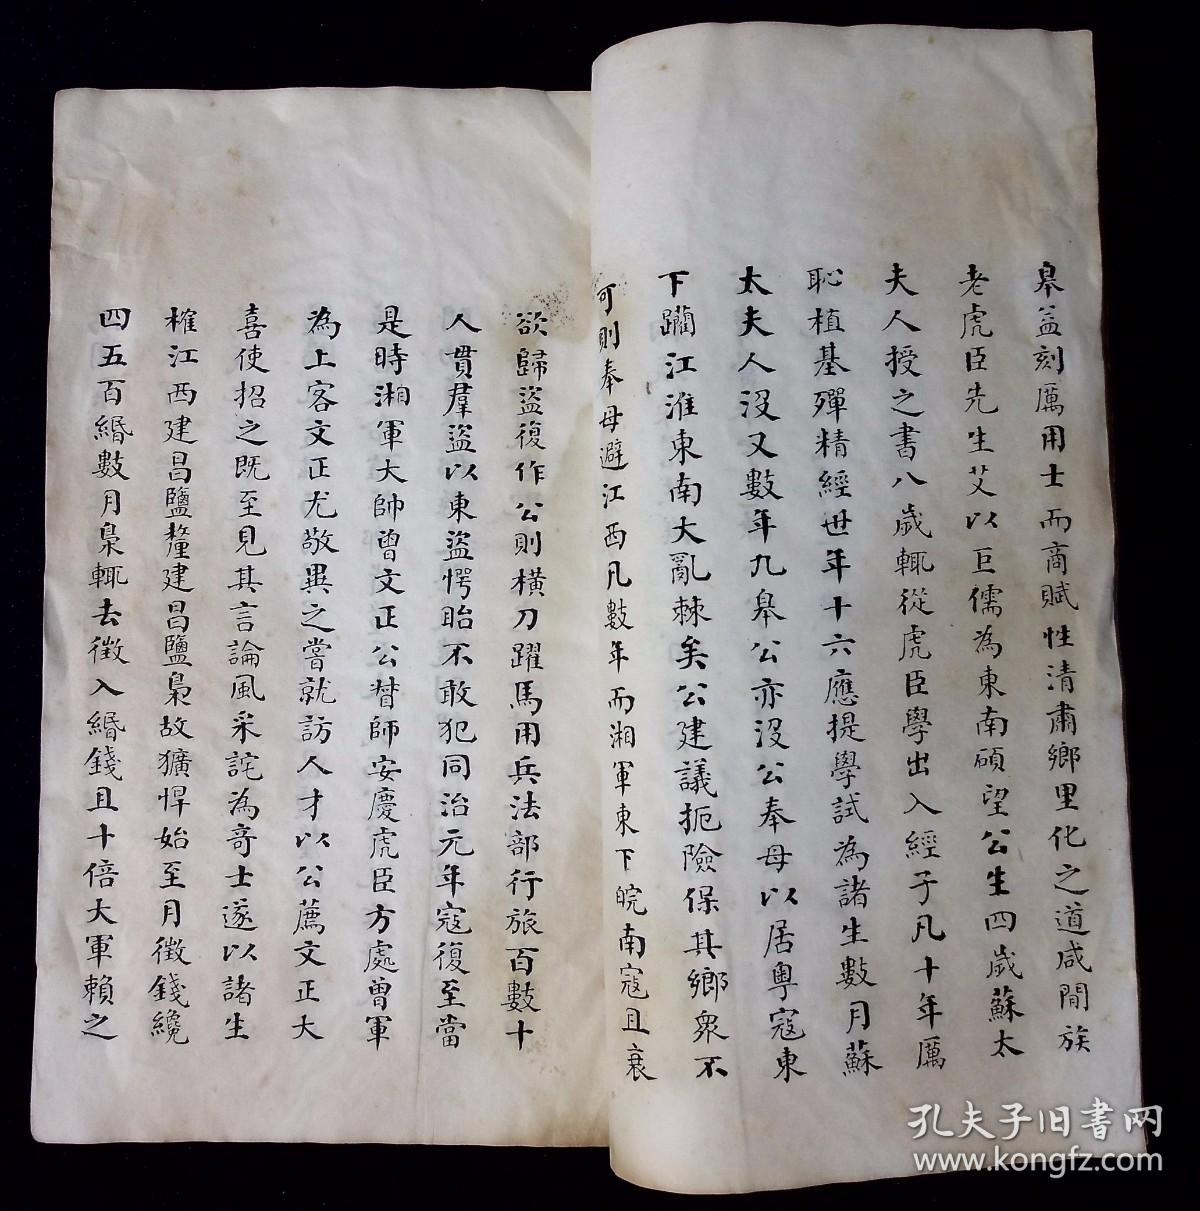 皋益刻厲用士而商賦性清肅鄉里化之道咸間族
老虎臣先生艾以巨儒為東南碩望公生四歲蘇太
夫人授之書八歲輒從虎臣學出入經子凡十年厲
恥植基殫精經世年十六應提學試為諸生數月蘇
太夫人沒又數年九皋公亦沒公奉母以居粵寇東
下躪江淮東南大亂棘矣公建議扼險保其鄉眾不
可則奉母避江西凡數年而湘軍東下皖南寇且衰
欲歸盜復作公則橫刀躍馬用兵法部行旅百數十
人貫羣盜以東盜愕眙不敢犯同治元年寇復至當
是時湘軍大帥曾文正公督師安慶虎臣方處曾軍
為上客文正尤敬異之嘗就訪人才以公薦文正大
喜使招之既至見其言論風采詫為奇士遂以諸生
榷江西建昌鹽釐建昌鹽梟故獷悍始至月徵錢纔
四五百緡數月梟輒去徵入緡錢且十倍大軍賴之
孔夫子旧书网
www.kongfz.com